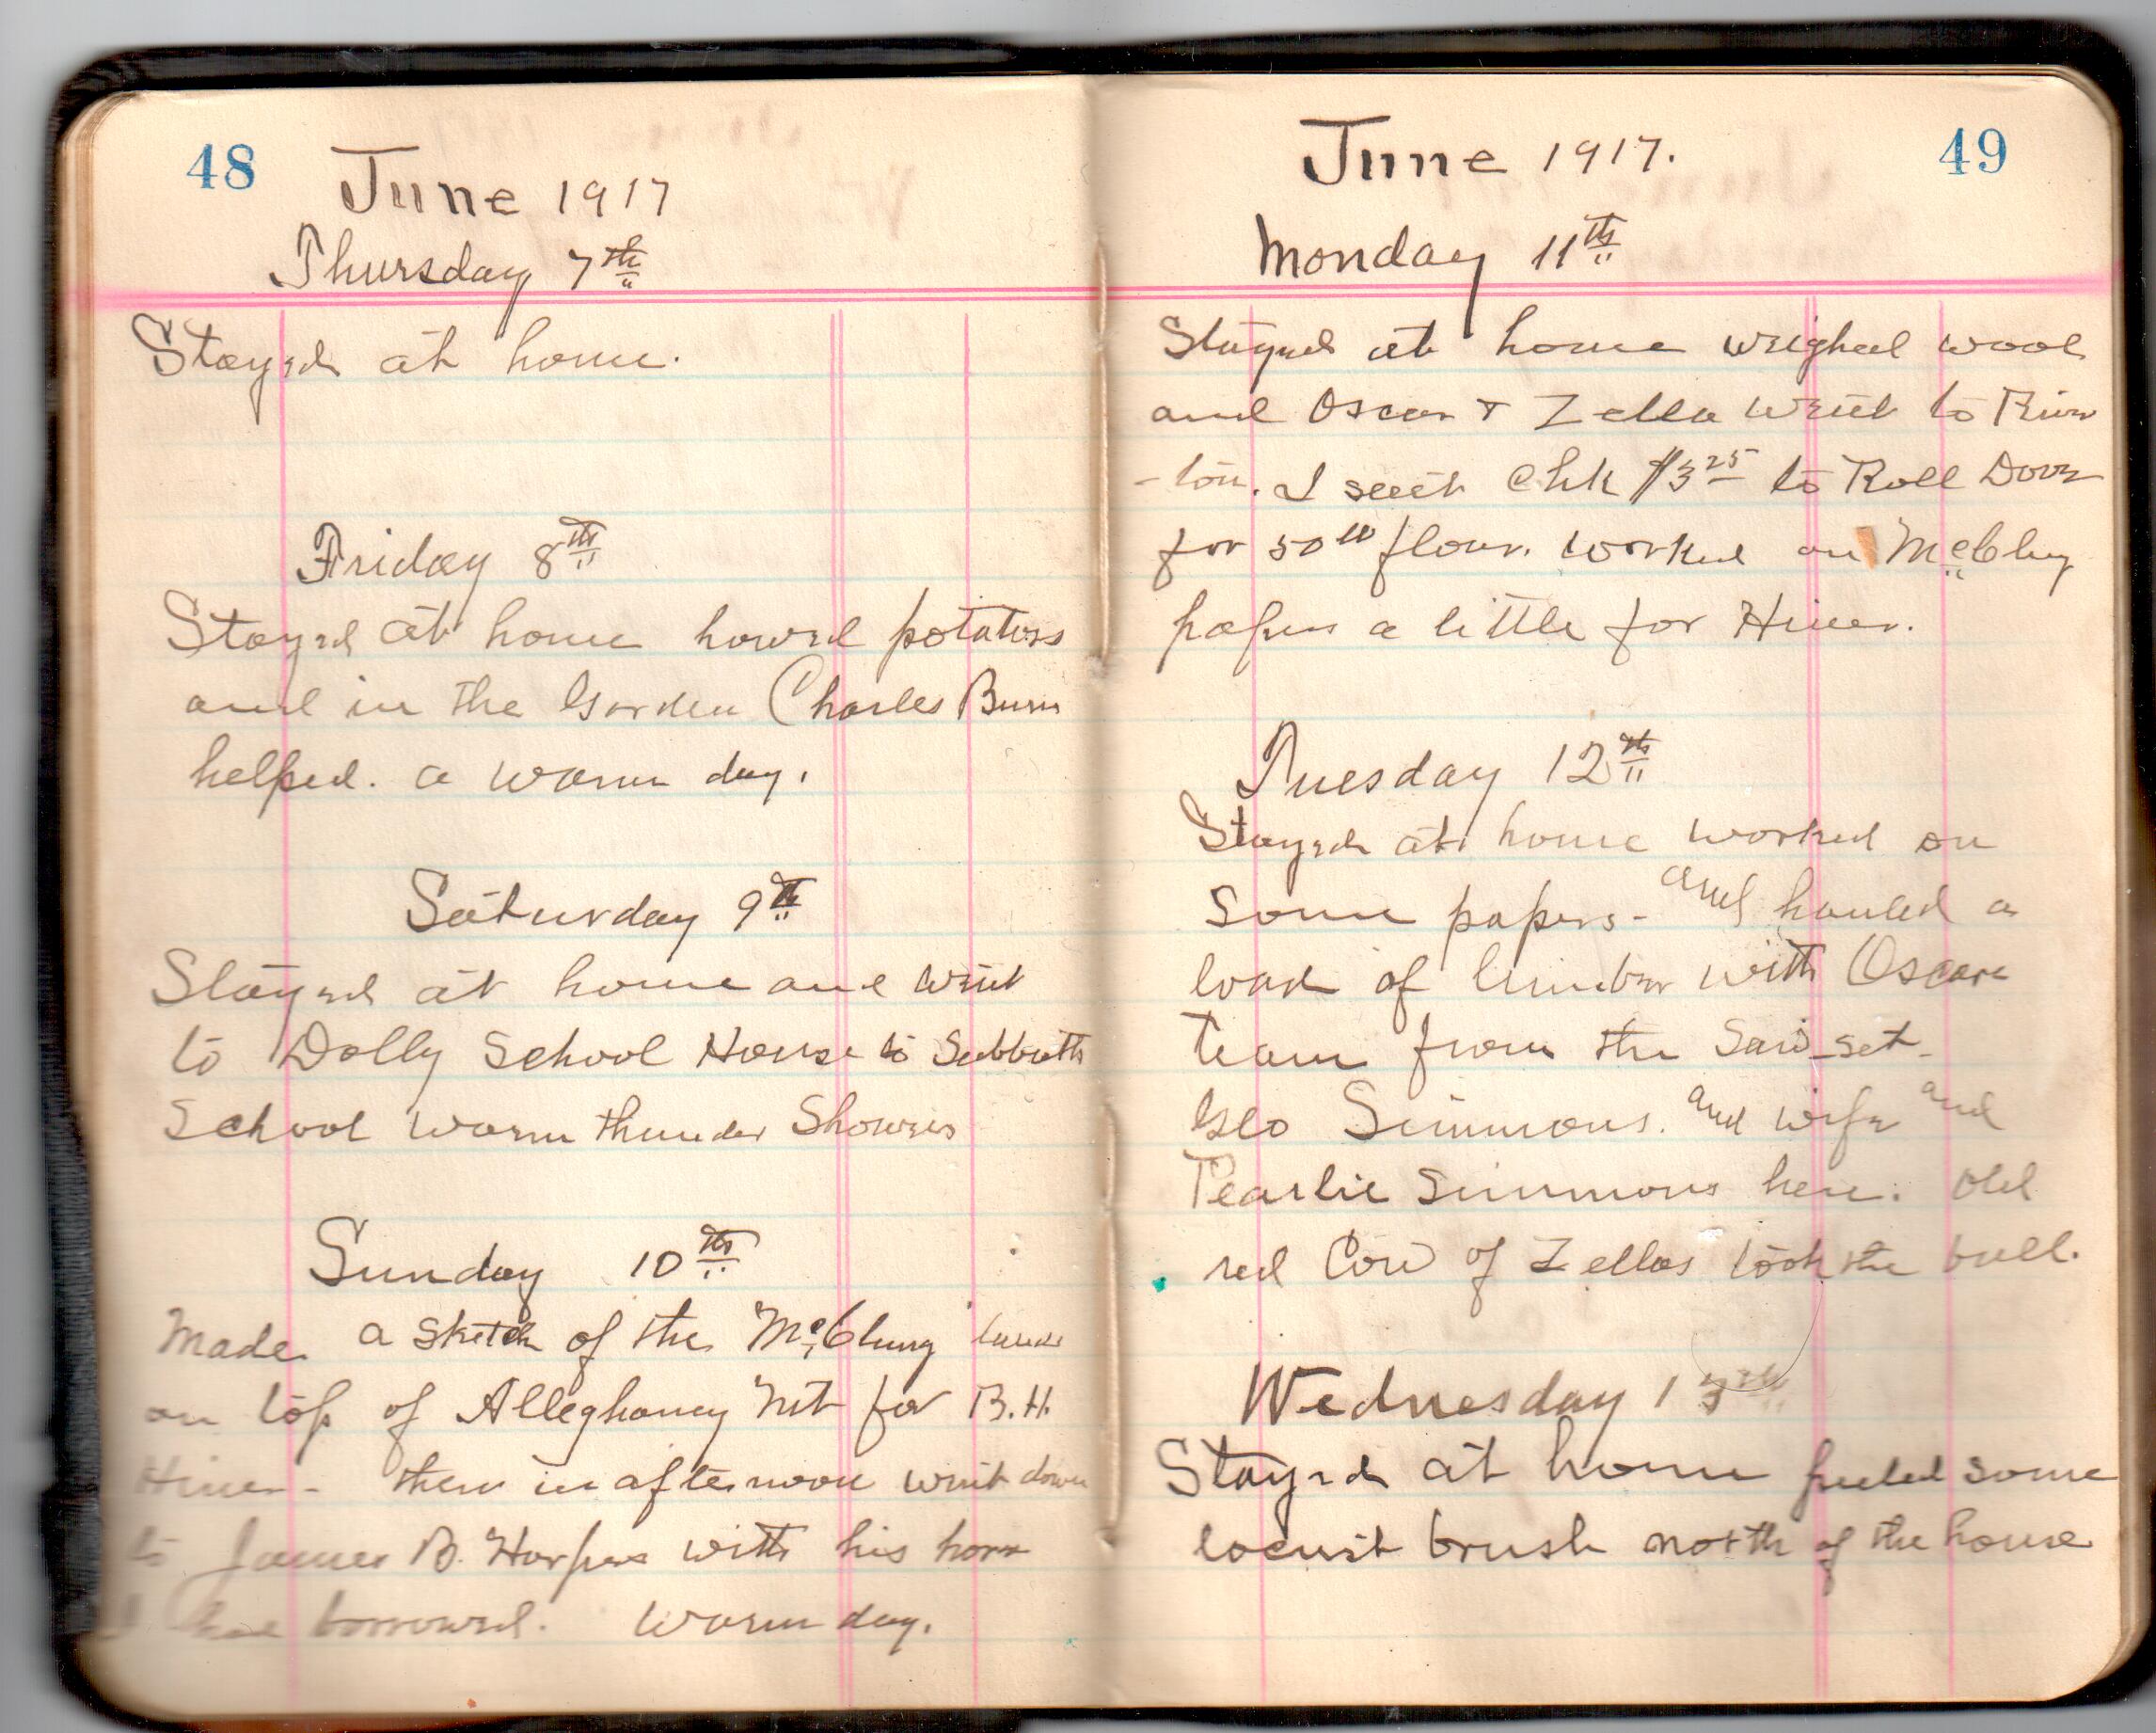 48
June 1917
Thursday 7th
Stayed at home.
Friday 8th
Stayed at home howed potatoes
and in the Garden Charles Burns
helped. a warm day.
Saturday 9th
Stayed at home and went
to Dolly School House to Sabbath
School warm thunder Showers
Sunday 10th
Made a sketch of the McClung lands
on top of Alleghaney Mt for B. H.
Hiner - then in afternoon went down
to James B. Harpers with his horse
I had borrowed. Warm day.
49
June 1917.
Monday 11th
Stayed at home weighed wool
and Oscar & Zella went to River
-ton. I sent Chk $3 25 to Roll Dove
for 50 lb flour. worked on McClung
papers a little for Hiner.
Tuesday 12th
Stayed at home worked on
some papers - and hauled a
load of lumber with Oscars
team from the Saw-set-
Geo Simmons. and wife and
Pearlie Simmons here. Old
red Cow of Zellas took the bull.
Wednesday 13th
Stayed at home some
locust brush north of the house